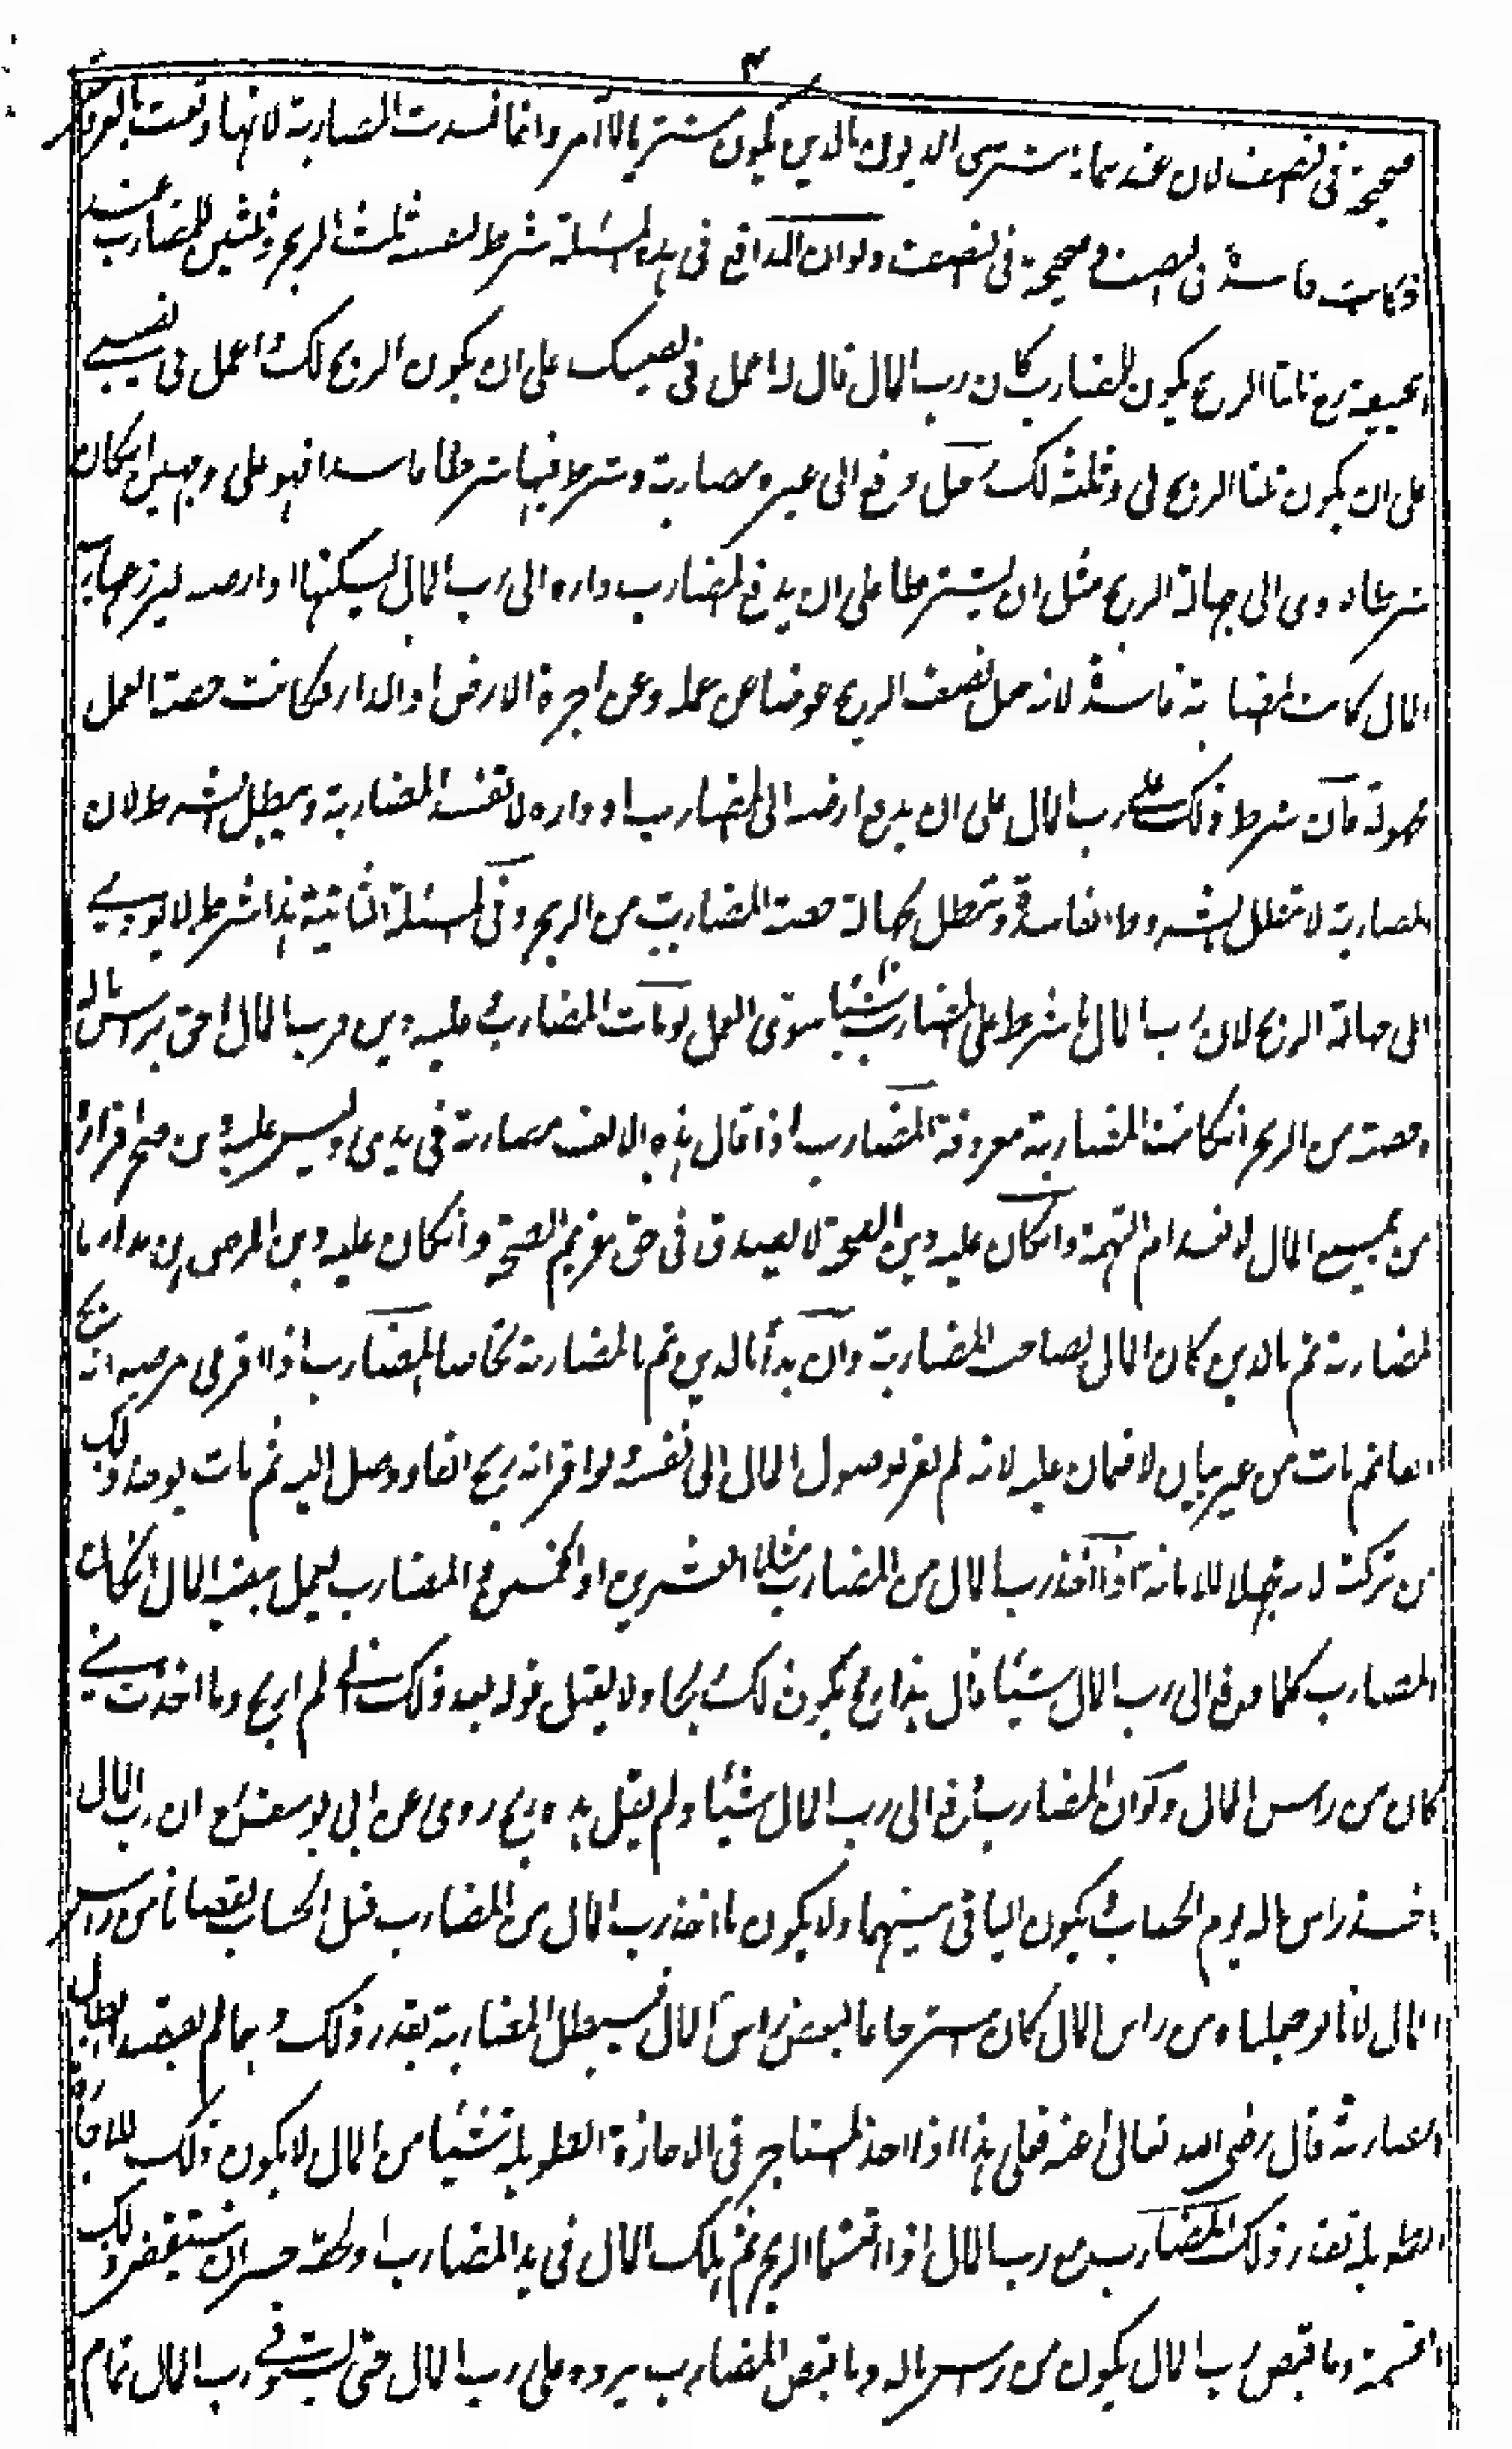 ٣
صحيحة فى النصف لان عندهما يشترى الديون بالدين يكون مشتريا للآمر وانما فسدت المضاربة لانها وقعت بالعروض
فكانت فاسدة فى النصف وصحيحة فى النصف ولو ان الدافع فى هذه المسئلة شرط لنفسه ثلث الربح وثلثين للمضارب عند
ابيحنيفة رح ثلثا الربح يكون للمضارب كان رب المال قال له اعمل فى نصيبك على ان يكون الربح لك واعمل فى نصيبى
على ان يكون ثلثا الربح لى وثلثه لك رجل دفع الى غيره مضاربة وشرط فيها شرطا فاسدا فهو على وجهين ان كان
شرطا يودى الى جهالة الربح مثل ان يشترطا على ان يدفع المضارب داره الى رب المال ليسكنها او ارضه ليزرعها رب
المال كانت المضاربة فاسدة لانه جعل نصف الربح عوضا عن عمله وعن اجرة الارض او الدار فكانت حصة العمل
مجهولة فان شرط ذلك على رب المال على ان يدفع ارضه الى المضارب او داره لا تفسد المضاربة ويبطل الشرط لان
المضاربة لا تبطل بالشروط الفاسدة وتبطل بجهالة حصة المضارب من الربح وفى المسئلة الثانية هذا شرط لا يودى
الى جهالة الربح لان رب المال ما شرط على المضارب شيئا سوى العمل لو مات المضارب وعليه دين فرب المال احق براس ماله
وحصته من الربح ان كانت المضاربة معروفة المضارب اذا قال هذه الالف مضاربة فى يدى وليس عليه دين صح اقراره
من جميع المال لانعدام التهمة وان كان عليه دين الصحة لا يصدق فى حق غريم الصحة وان كان عليه دين المرض ان بدا بـ
المضاربة ثم بالدين كان المال لصاحب المضاربة وان بدأ بالدين ثم بالمضاربة تحاصا المضارب اذا اقر فى مرضه انه ربح
الفا ثم مات من غير بيان لا ضمان عليه لانه لم يقر بوصول المال الى نفسه ولو اقر انه ربح الفا ووصل اليه ثم مات يوخذ ذلك
من تركته لانه مجهلا للامانة اذا اخذ رب المال من المضارب مثلا العشرين او الخمسين والمضارب يعمل ببقية المال ان كان
المضارب كلما دفع الى رب المال شيئا قال هذا ربح يكون ذلك ربحا ولا يقبل قوله بعد ذلك لم اربح وما اخذت منى
كان من راس المال ولو ان المضارب دفع الى رب المال شيئا ولم يقل هذه ربح روى عن ابى يوسف رح ان رب المال
ياخذ راس ماله يوم الحساب ويكون الباقى بينهما ولا يكون ما اخذ رب المال من المضارب قبل الحساب نقصانا من راس
المال لانا لو جعلناه من راس المال كان مسترجعا لبعض راس المال فيبطل المضاربة بقدر ذلك وربما لم يقصد ابطال
المضاربة قال رضى الله تعالى عنه فعلى هذا اذا اخذ المستاجر فى الاجازة الطويلة شيئا من المال لا يكون ذلك
الطويلة بقدر ذلك المضارب مع رب المال اذا اقتسما الربح ثم هلك المال فى يد المضارب او لحقه خسران ينتقض ذلك
القسمة وما قبض رب المال يكون من راس ماله وما قبض المضارب يرده على رب المال حتى يستوفى رب المال تمام